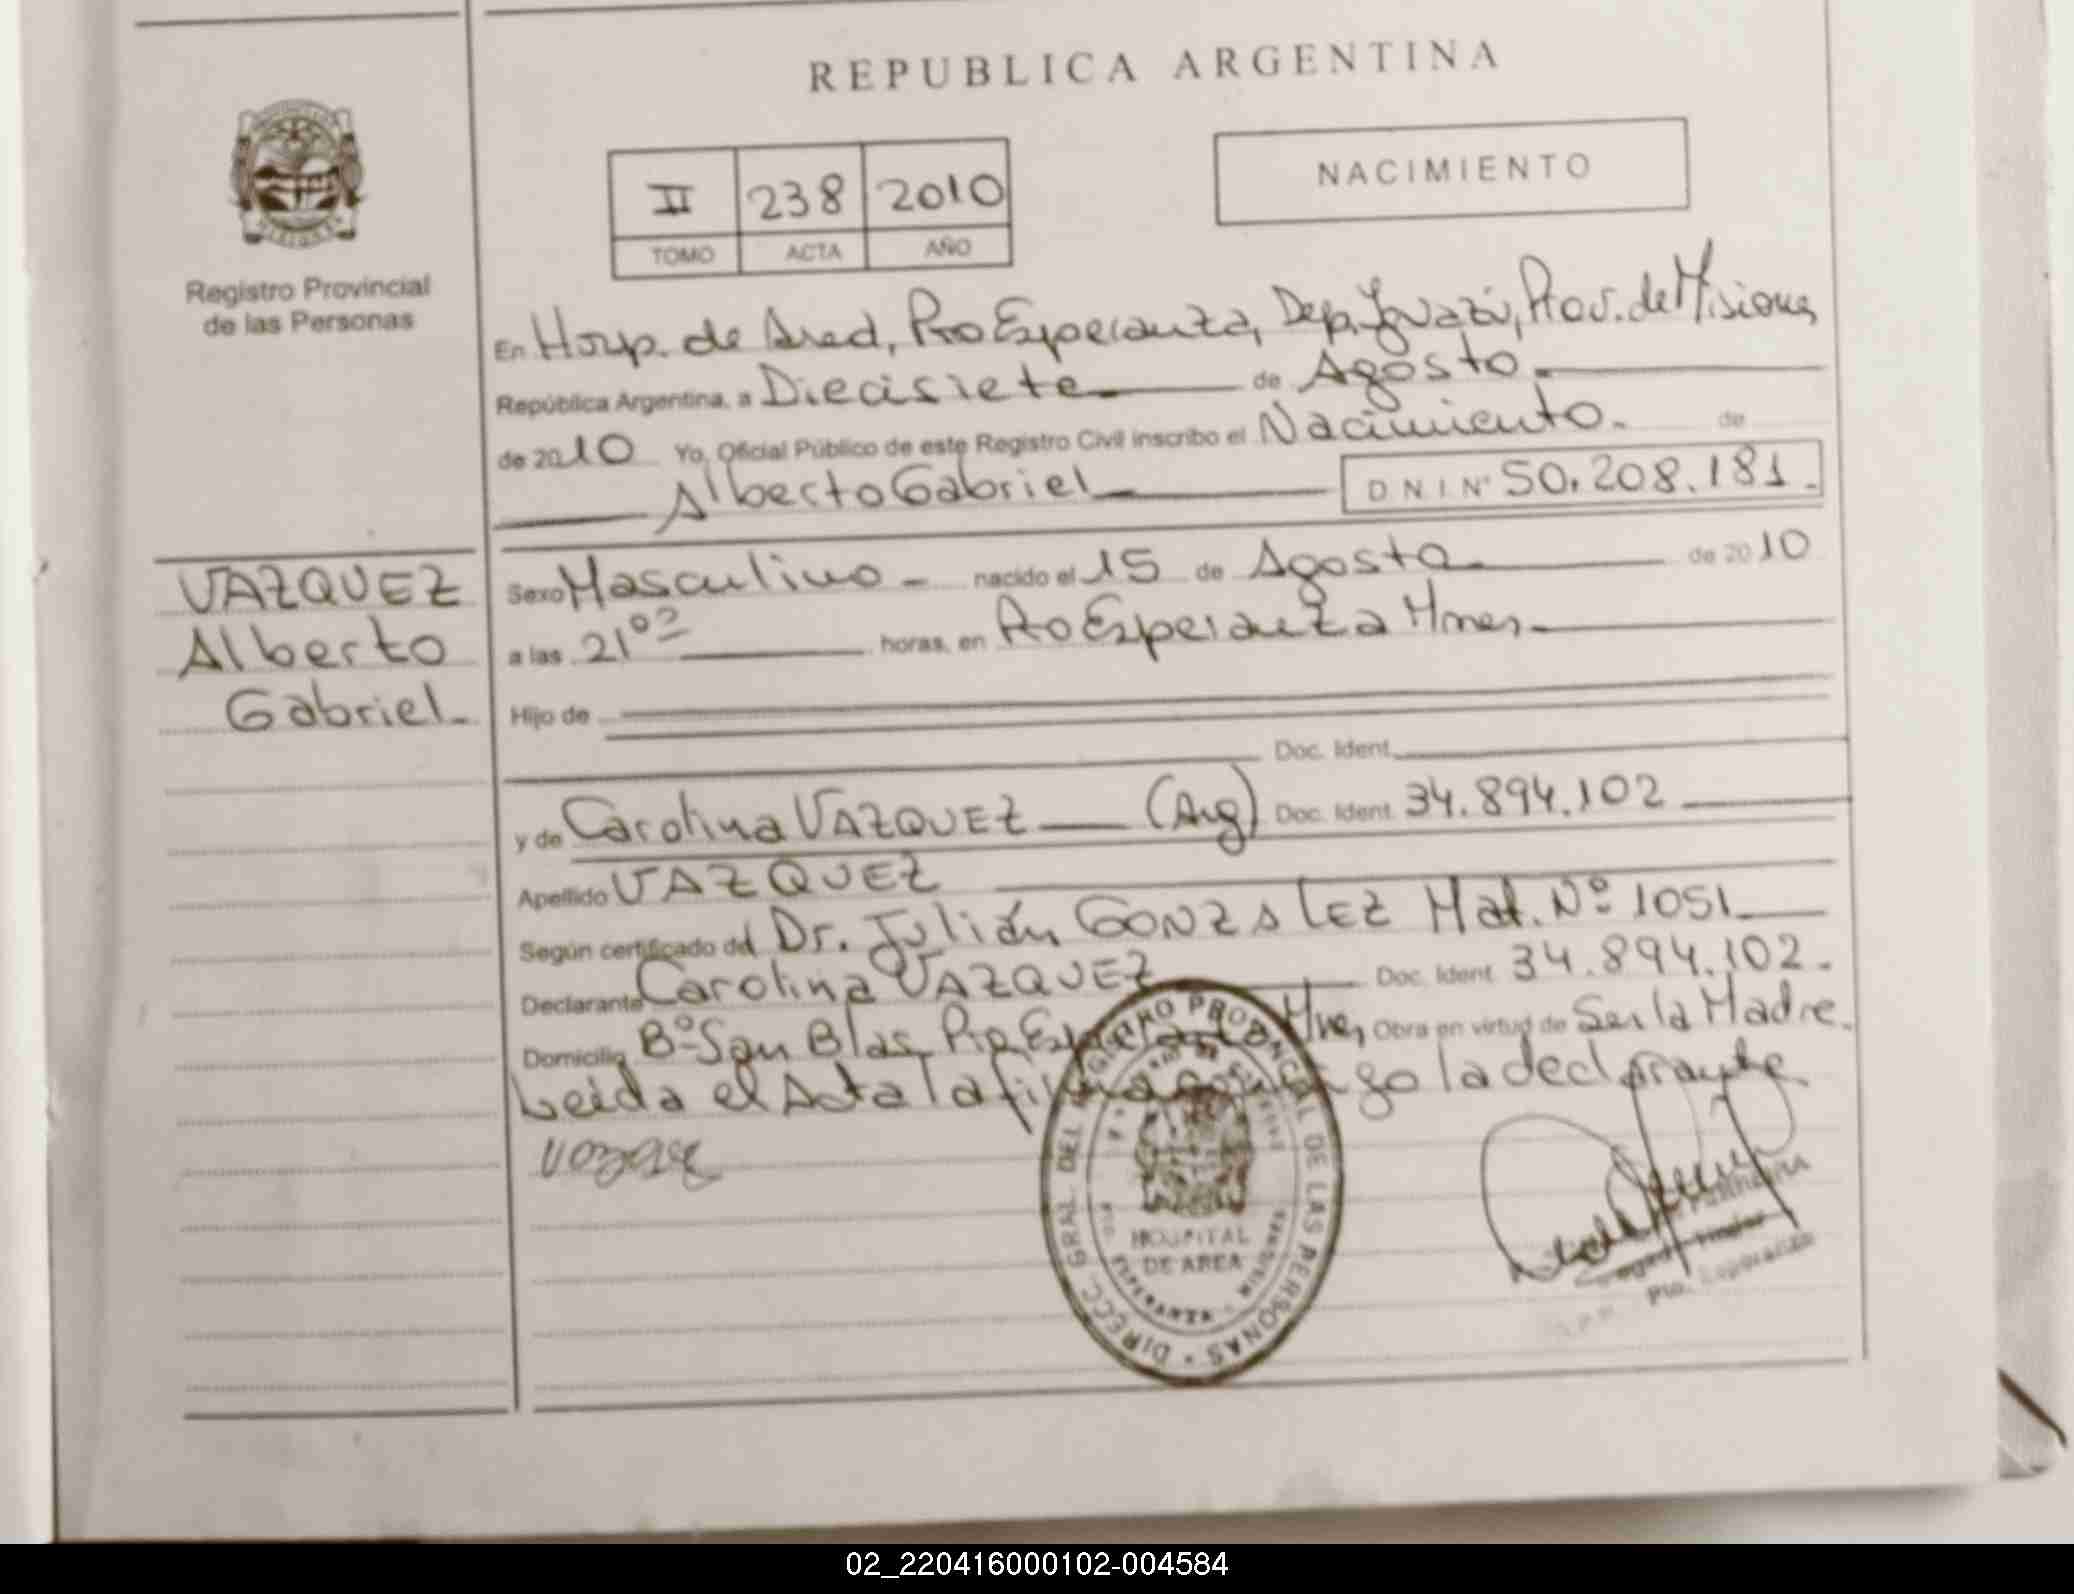 REPUBLICA ARGENTINA
II 238 2010
TOMO ACTA AÑO
NACIMIENTO
Registro Provincial
de las Personas
En Hosp. de Area, Pto Esperanza, Dep. Iguazú, Prov. de Misiones
República Argentina, a Diecisiete de Agosto
de 2010 Yo, Oficial Público de este Registro Civil inscribo el Nacimiento. de
Alberto Gabriel DNI Nº 50.208.181.
VAZQUEZ
Alberto
Gabriel
Sexo Masculino nacido el 15 de Agosto de 2010
a las 21 horas, en Pto Esperanza Mnes
Hijo de
Doc. Ident.
y de Carolina VAZQUEZ (Arg) Doc. Ident. 34.894.102
Apellido VAZQUEZ
Según certificado del Dr. Julián GONZALEZ Mat. Nº 1051
Declarante Carolina VAZQUEZ Doc. Ident. 34.894.102.
Domicilio Bº San Blas Pto Esperanza Mnes Obra en virtud de Ser la Madre.
Leída el Acta la firma conmigo la declarante
DIRECC. GRAL. DEL REGISTRO PROVINCIAL DE LAS PERSONAS
HOSPITAL
DE AREA
Pto. Esperanza
02_220416000102-004584